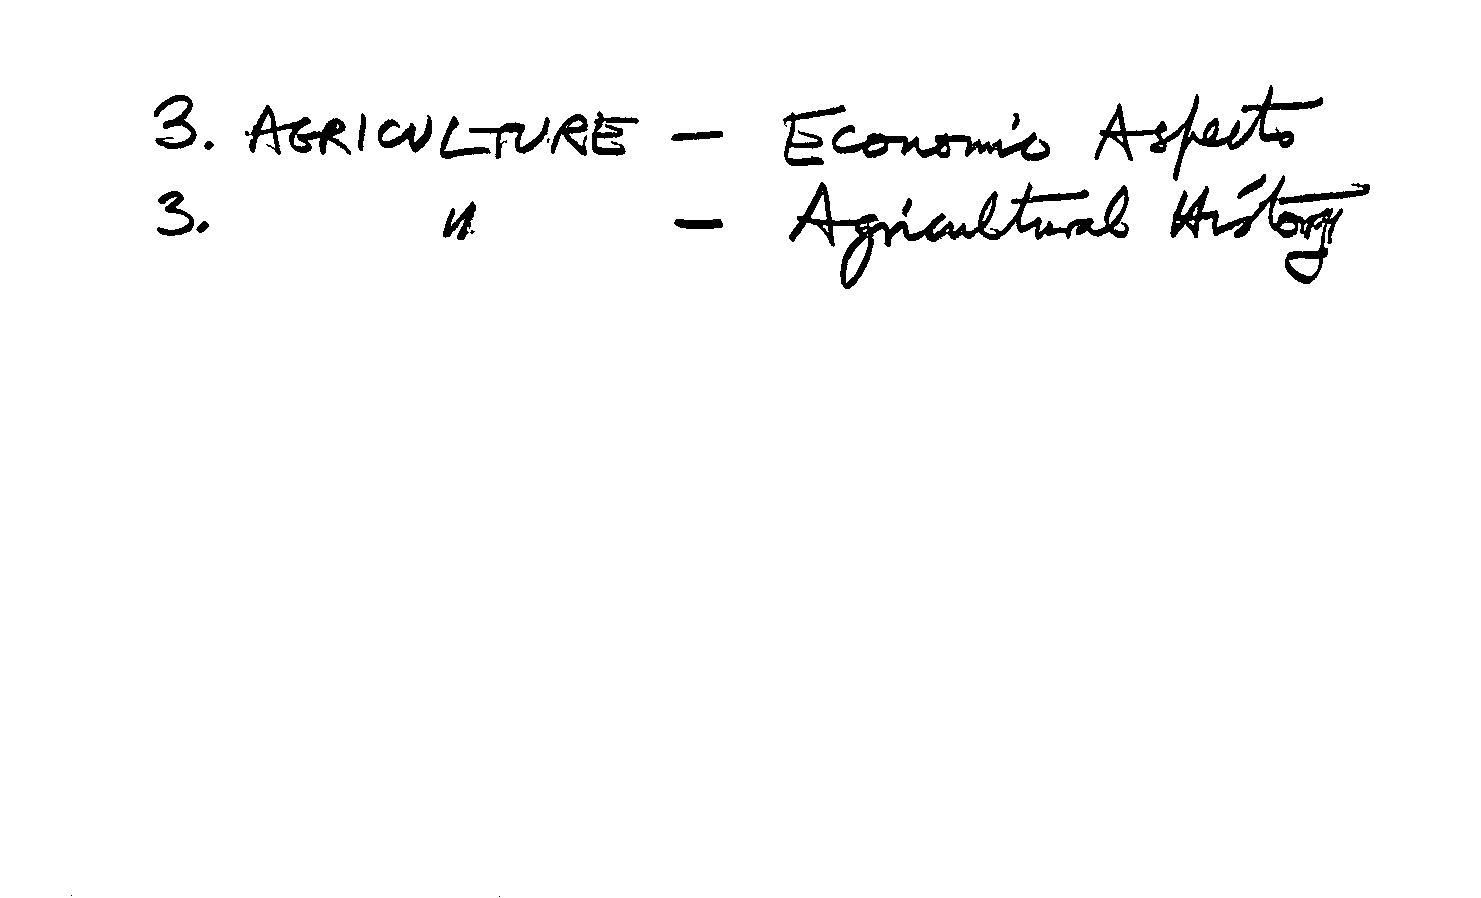 3. AGRICULTURE — Economic Aspects
3. " — Agricultural History